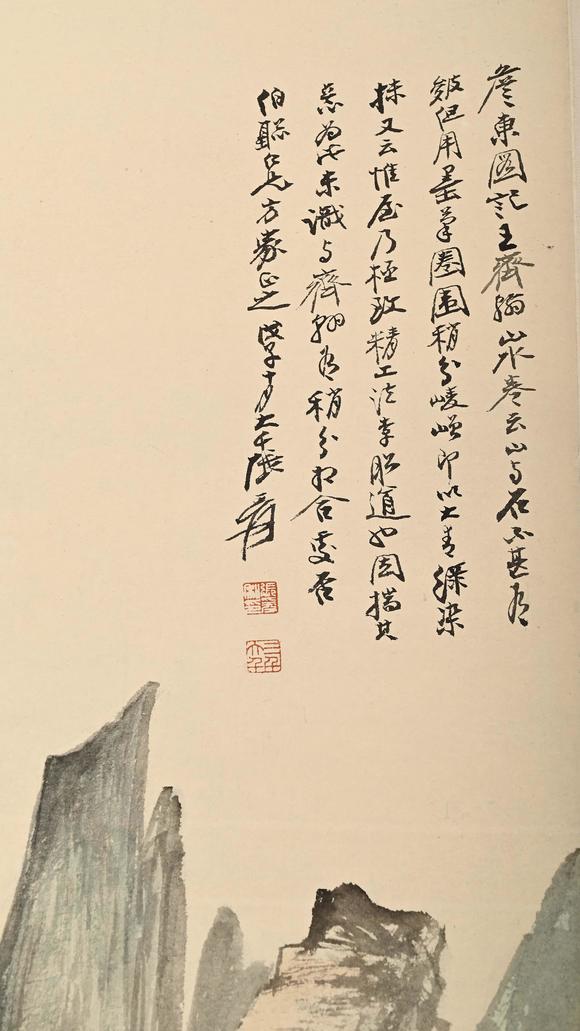 詹東圖記王齊翰山水卷云山與石不甚有
皴但用墨筆圈圍稍分崚嶒即以大青綠染
抹又云惟屋乃極致精工法李昭道也因揣其
意為此未識與齊翰有稍分相合處否
伯聰仁兄方家正之 十月大千張爰
張爰
大千